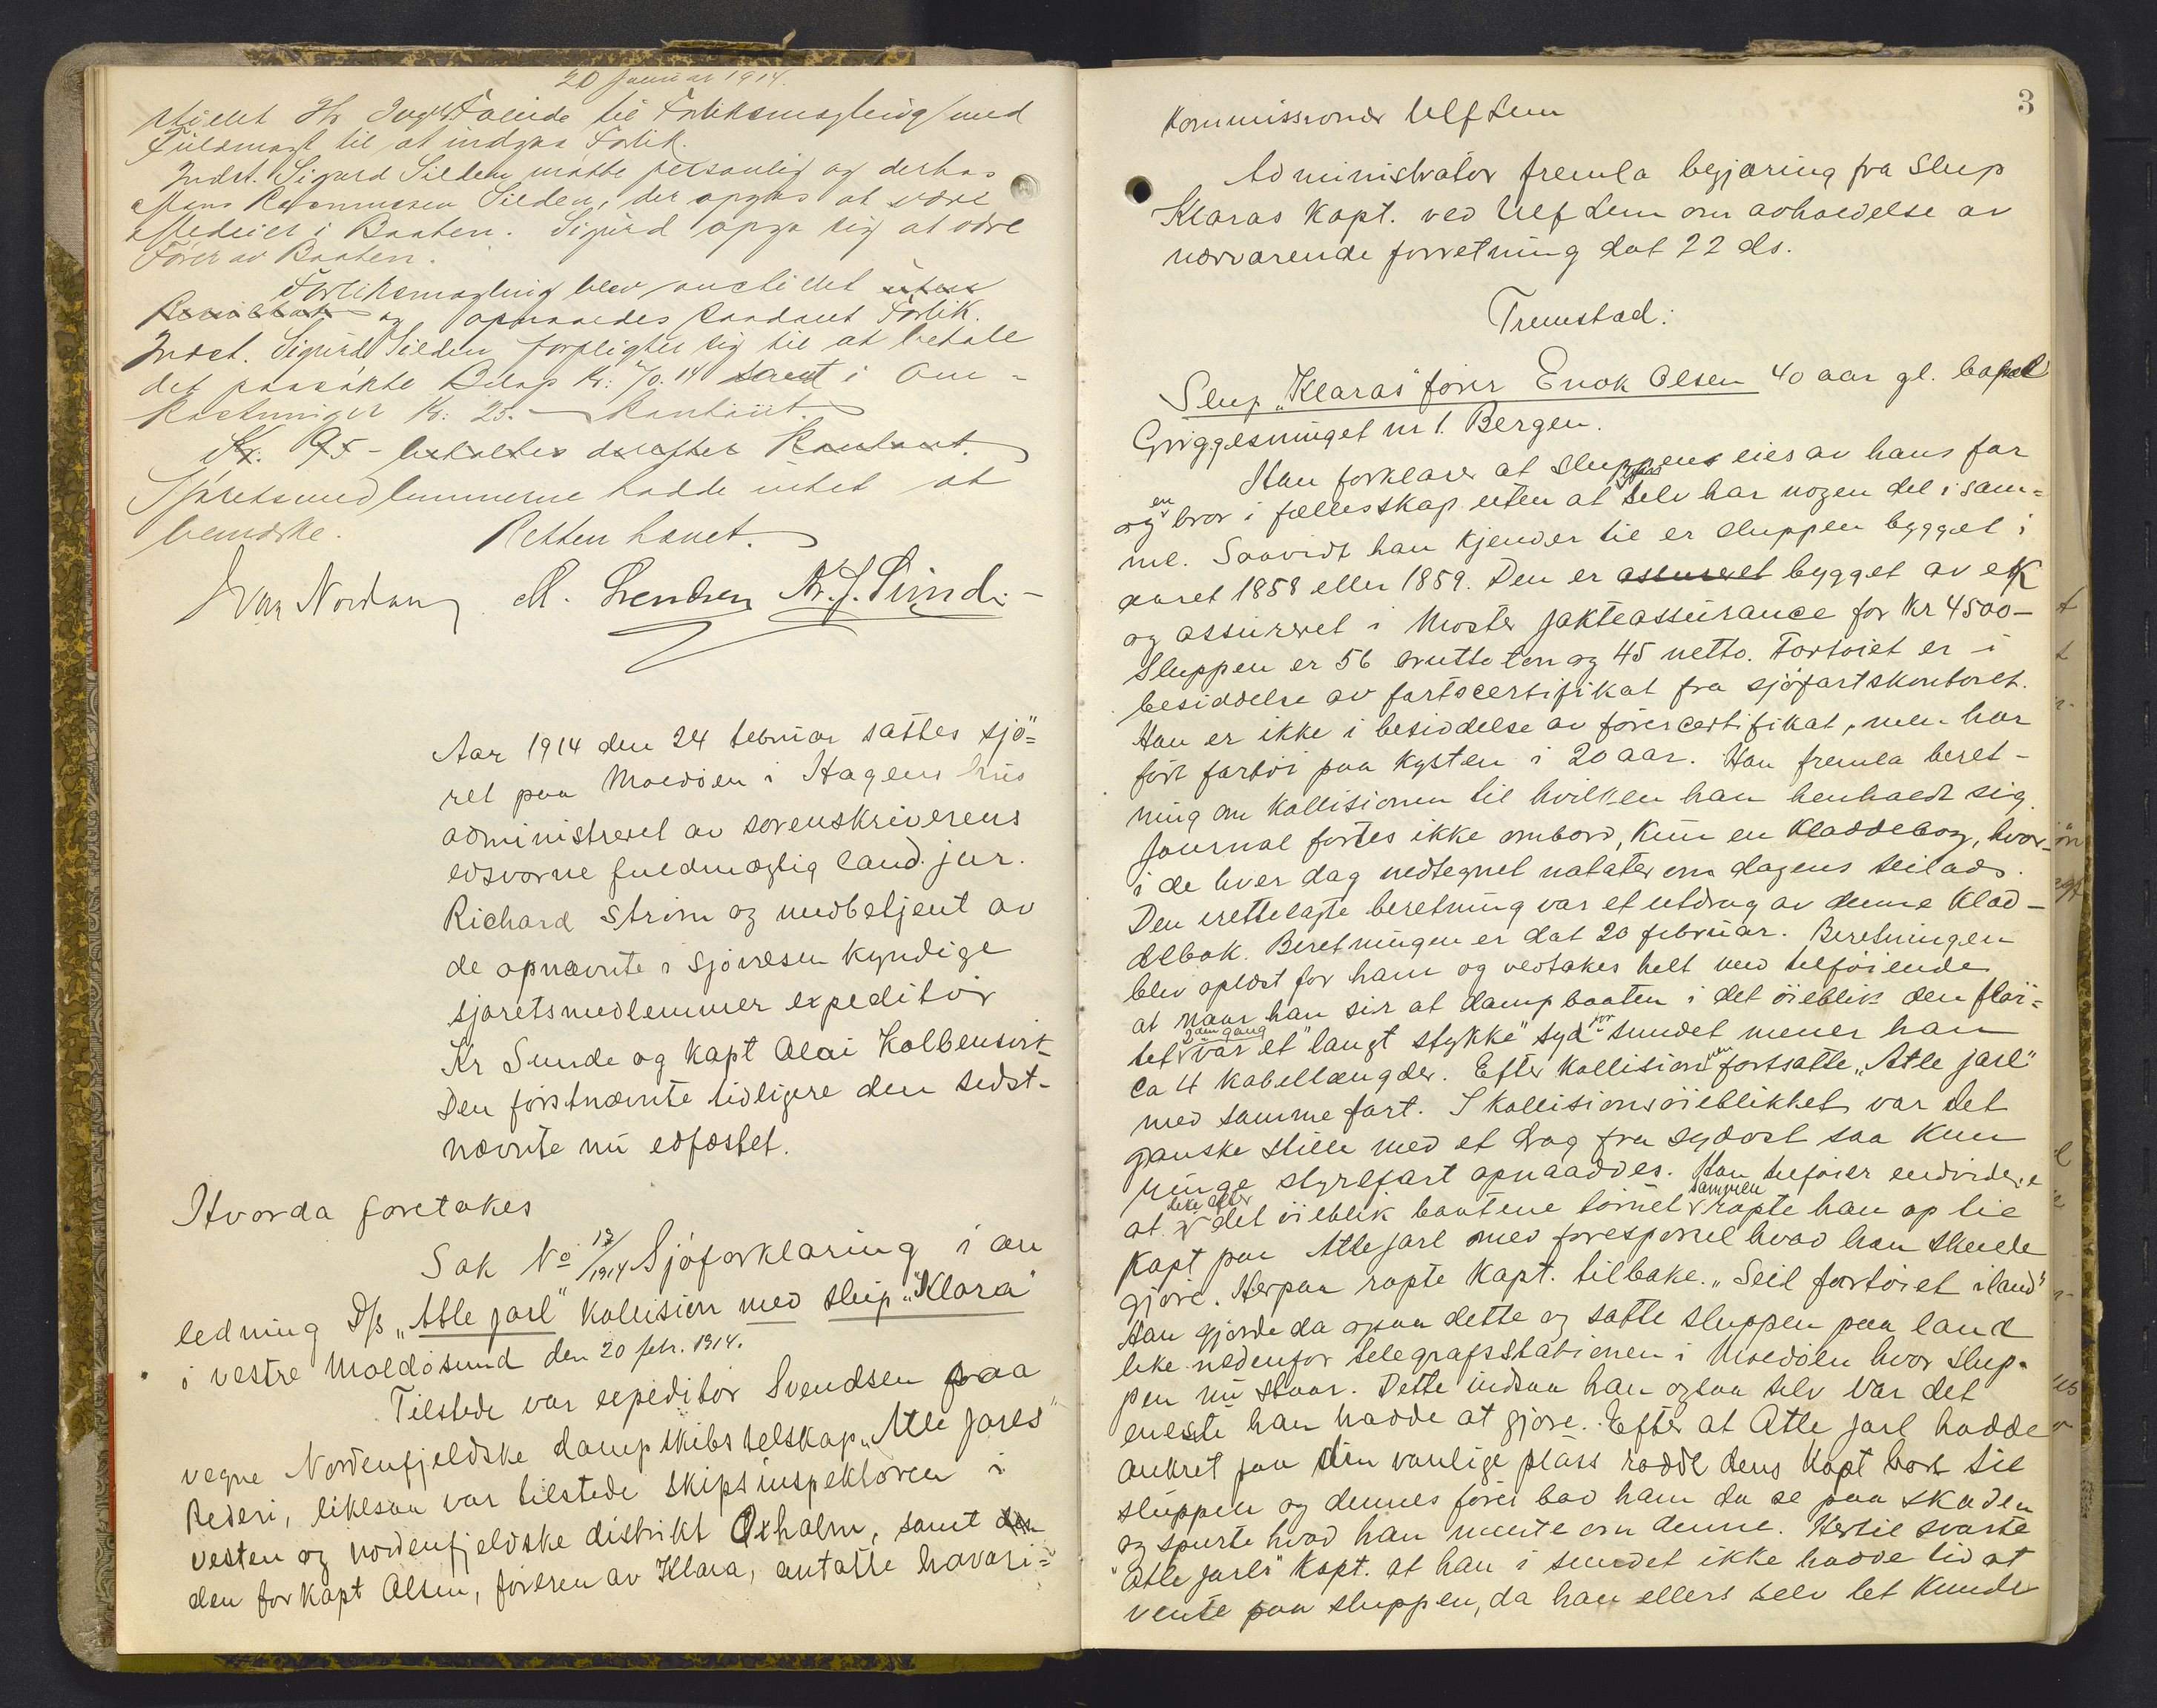 20 Januar 1914.
til Forliksmægling med
Fuldmagt til at indgaa Forlik.
Indst. Sigurd Silden møtte personlig og derhos
Mons Rasmussen Silden, der opgaves at være
Medeier i Baaten. Sigurd opga sig at være
Fører av Baaten.
Forliksmægling blev anstillet uten
Resultat og opnaaedes saadant Forlik.
Indst. Sigurd Silden forpligter sig til at betale
det paasøkte Beløp Kr. 70.14 samt i Om-
kostninger Kr. 25.- kontant.
Kr. 95 - betaltes derefter kontant.
Sjøretsmedlemmerne hadde intet at
bemerke. Retten hævet.
Ivar Nordang M. Svendsen Kr. J. Sunde-
Aar 1914 den 24 februar sattes sjö=
ret paa Moldöen i Hagens hus
administreret av sorenskriverens
edsvorne fuldmægtig cand. jur.
Richard Ström og medbetjent av
de opnævnte i sjövæsen kyndige
sjøretsmedlemmer expeditör
Kr Sunde og Kapt Olai Kolbensvik
Den förstnævnte tidligere den sidst-
nævnte nu edfæstet.
Hvorda foretakes
Sak No 13/1914 Sjöforklaring i an
ledning D/s "Atle Jarl" kollision med slup "Klara"
i vestre Moldösund den 20 febr. 1914.
Tilstede var expeditör Svendsen paa
vegne Nordenfjeldske dampskibsselskap "Atle Jarls"
Rederi, likesaa var tilstede skipsinspektören i
vesten og nordenfjeldske distrikt Oxholm, samt den
den for Kapt Olsen, föreren av Klara, antatte havari=
3
Kommissionær Ulf Lem
Administrator fremla begjæring fra slup
Klaras Kapt. ved Ulf Lem om avholdelse av
nærværende forretning dat 22 ds.
Fremstod:
Slup "Klaras" förer Enok Olsen 40 aar gl. bopæl
nr 1. Bergen.
Han forklarer at sluppen eies av hans far
og en bror i fællesskap uten at selv har nogen del i sam=
me. Saavidt han kjender til er sluppen bygget i
aaret 1858 eller 1859. Den er assureret bygget av ek
og assureret i Moster Jakteassurance for Kr 4500-
Sluppen er 56 brutto ton og 45 netto. Fartöiet er i
besiddelse av fartscertifikat fra sjöfartskontoret.
Han er ikke i besiddelse av förercertifikat, men har
fört fartöi paa kysten i 20 aar. Han fremla beret-
ning om kollisionen til hvilken han henholdt sig.
Journal förtes ikke ombord, kun en kladdebog, hvor=
i de hver dag nedtegnet notater om dagens seilads.
Den irettelagte beretning var et utdrag av denne klad-
debok. Beretningen er dat 20 februar. Beretningen
blev oplæst for ham og vedtakes helt med tilföiende
at naar han sir at dampbaaten i det öieblik den flöi=
tet 2den gang var et "langt stykke" syd for sundet mener han
ca 4 kabellængder. Efter kollisionen fortsatte "Atle Jarl"
med samme fart. I kollisionsöieblikket var det
ganske stille med et drag fra sydost saa kun
ringe styrefart opnaaddes. Han tilföier endvidere
at like efter det öieblik baatene törnet sammen ropte han op til
Kapt paa Atle Jarl med forespörsel hvad han skulde
gjöre. Herpaa ropte Kapt. tilbake. "Seil fartöiet iland"
Han gjorde da ogsaa dette og satte sluppen paa land
like nedenfor telegrafstationen i Moldöen hvor slup-
pen nu staar. Dette indsaa han ogsaa selv var det
eneste han hadde at gjöre. Efter at Atle Jarl hadde
ankret paa sin vanlige plass rodde dens Kapt bort til
sluppen og dennes förer bad ham da se paa skaden
og spurte hvad han mente om denne. Hertil svarte
"Atle Jarls" Kapt. at han i sundet ikke hadde tid at
vente paa sluppen, da han ellers selv let kunde